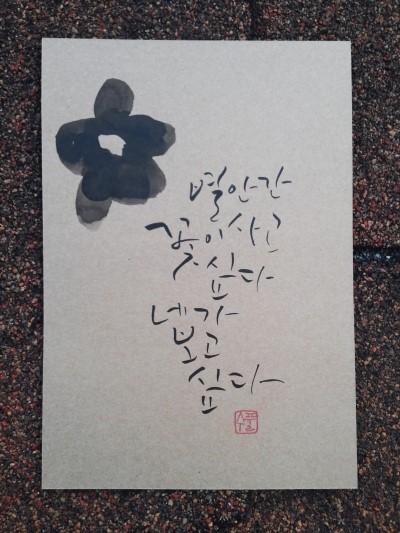 별안간
꽃이사고
싶다
네가
보고
싶다